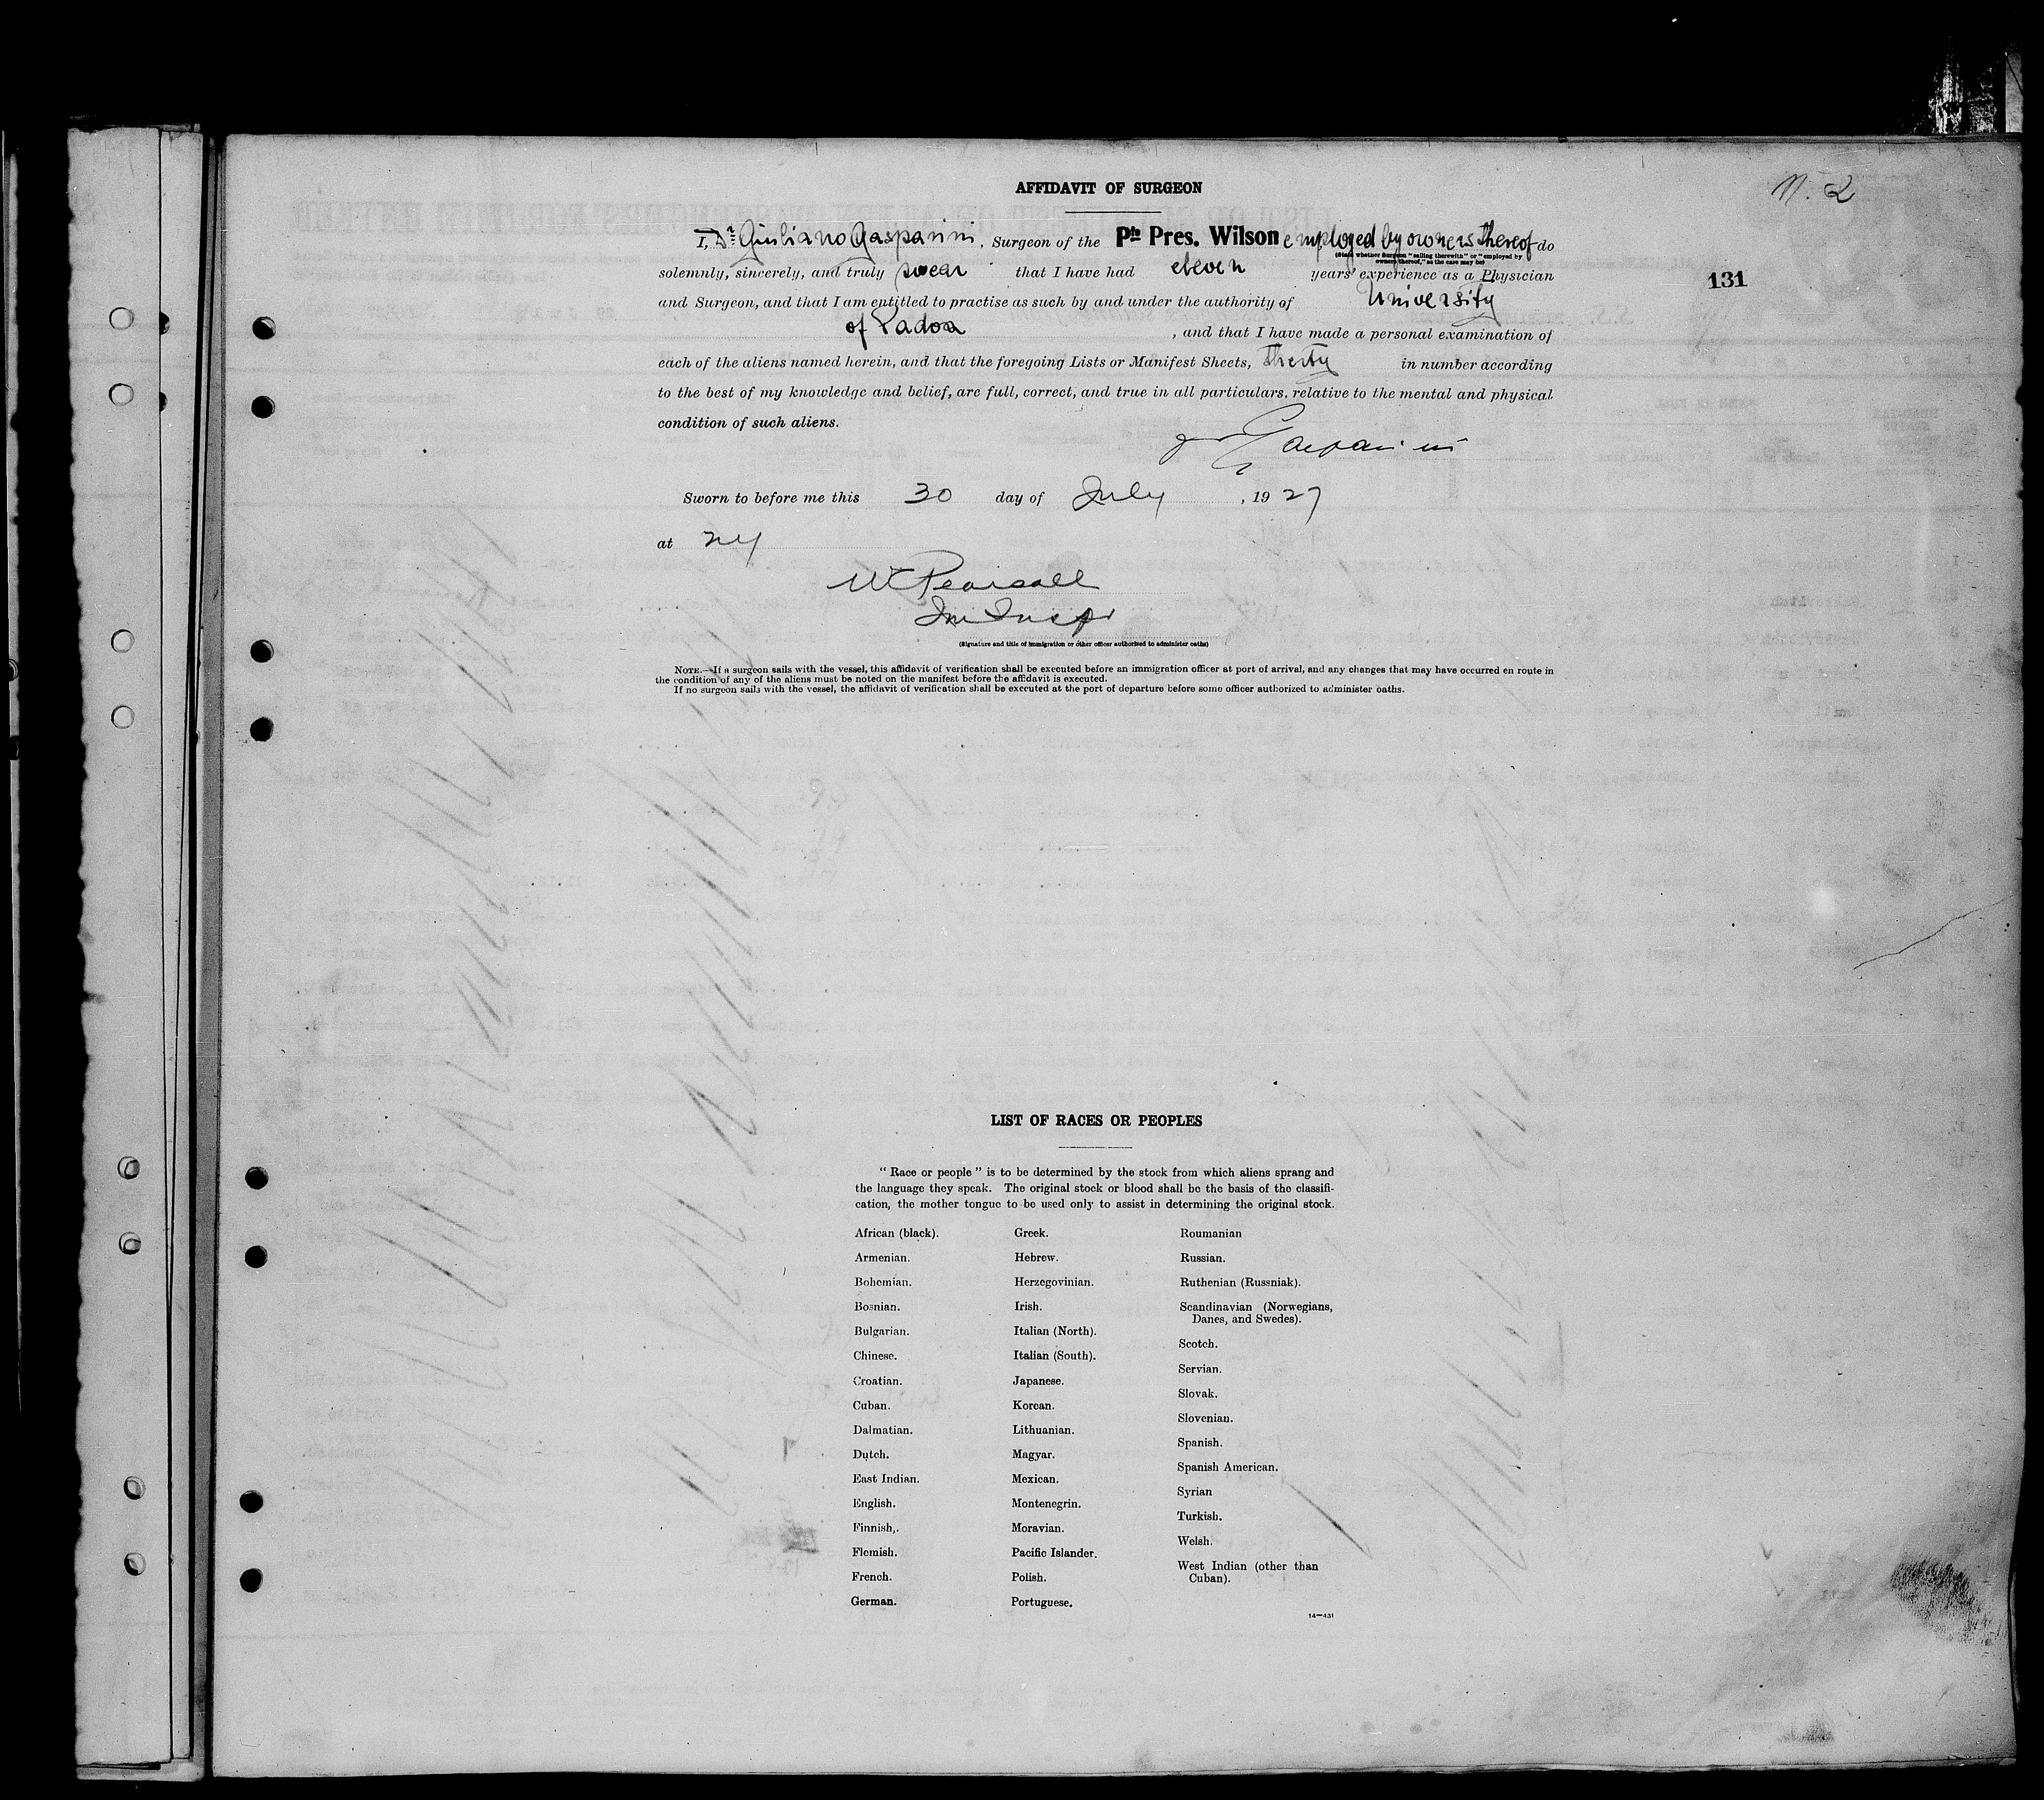 N. 2
AFFIDAVIT OF SURGEON
I, Dr Giuliano Gasparini, Surgeon of the Pte Pres. Wilson employed by owners thereof do
(State whether Surgeon "sailing therewith" or "employed by
owners thereof," as the case may be)
131
solemnly, sincerely, and truly swear that I have had eleven years' experience as a Physician
and Surgeon, and that I am entitled to practise as such by and under the authority of University
of Padoa, and that I have made a personal examination of
each of the aliens named herein, and that the foregoing Lists or Manifest Sheets, therty in number according
to the best of my knowledge and belief, are full, correct, and true in all particulars, relative to the mental and physical
condition of such aliens.
Gasparini
Sworn to before me this 30 day of July, 1927
at NY
W Pearsall
Im Insp
(Signature and title of immigration or other officer authorized to administer oaths)
NOTE.—If a surgeon sails with the vessel, this affidavit of verification shall be executed before an immigration officer at port of arrival, and any changes that may have occurred en route in
the condition of any of the aliens must be noted on the manifest before the affidavit is executed.
If no surgeon sails with the vessel, the affidavit of verification shall be executed at the port of departure before some officer authorized to administer oaths.
LIST OF RACES OR PEOPLES
"Race or people" is to be determined by the stock from which aliens sprang and
the language they speak. The original stock or blood shall be the basis of the classifi-
cation, the mother tongue to be used only to assist in determining the original stock.
African (black).
Armenian.
Bohemian.
Bosnian.
Bulgarian.
Chinese.
Croatian.
Cuban.
Dalmatian.
Dutch.
East Indian.
English.
Finnish,.
Flemish.
French.
German.
Greek.
Hebrew.
Herzegovinian.
Irish.
Italian (North).
Italian (South).
Japanese.
Korean.
Lithuanian.
Magyar.
Mexican.
Montenegrin.
Moravian.
Pacific Islander.
Polish.
Portuguese.
Roumanian
Russian.
Ruthenian (Russniak).
Scandinavian (Norwegians,
Danes, and Swedes).
Scotch.
Servian.
Slovak.
Slovenian.
Spanish.
Spanish American.
Syrian
Turkish.
Welsh.
West Indian (other than
Cuban).
14—431